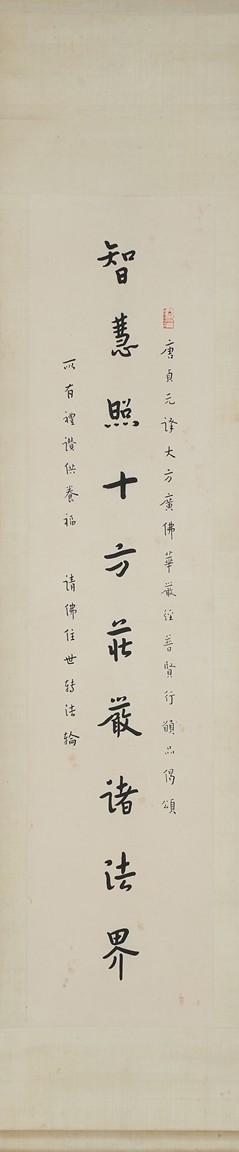 唐貞元譯大方廣佛華嚴經普賢行願品偈頌
智慧照十方莊嚴諸法界
所有禮讚供養福 請佛住世轉法輪